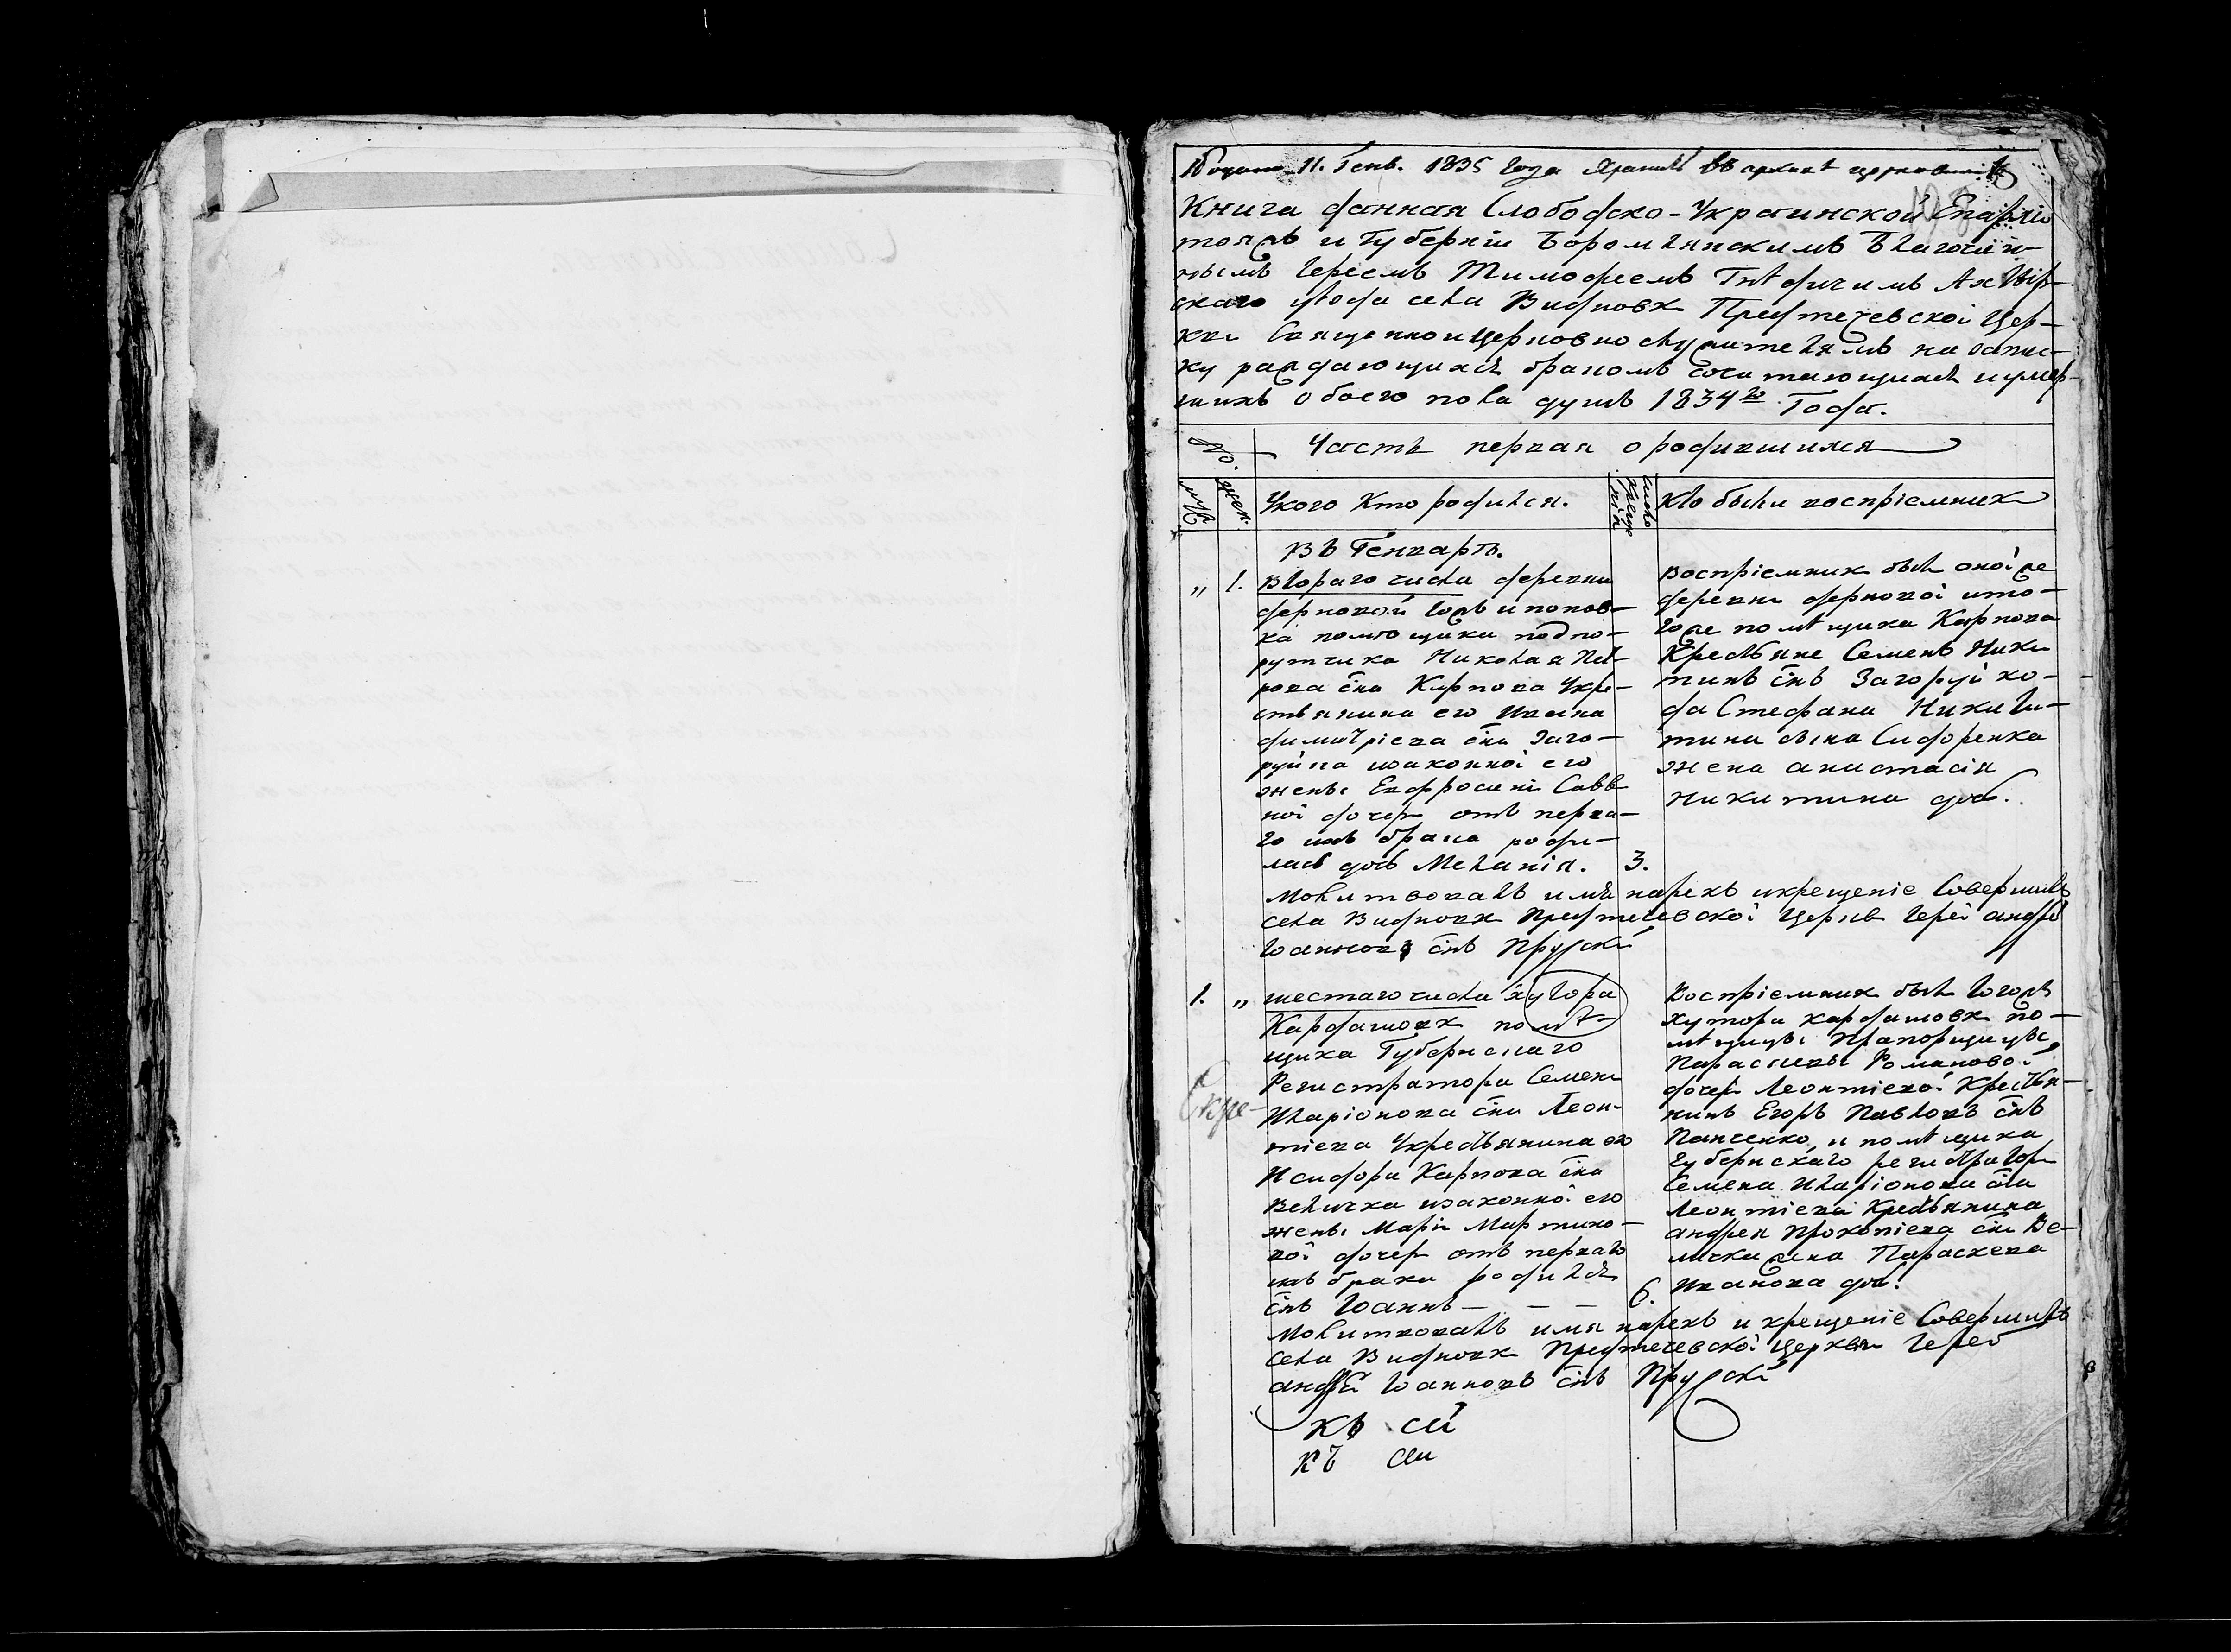 11. Генв. 1835 года хранить въ архивѣ
Книга данная Слободско-Украинской Епархіи
тояжъ и Губерніи Боромлянскимъ Благочин-
нымъ Іереемъ Тимофеемъ Ахтыр-
скаго уѣзда села Видновки Предтечевской Цер-
кви Священноцерковнослужителямъ на запис-
ку раждающихся бракомъ сочитающихся и умер-
шихъ обоего пола душъ 1834го Года.
Часть первая о родившихся
№.
муж. жен.
Укого Кто родился.
число креще нія
Кто были воспріемники
Въ Генварѣ.
„ 1. Втораго числа деревни
дерновой
помющика подпо-
рутчика Николая Пет-
рова сна Карпова Укре-
стьянина его Ивана
димитріева сна Заго-
руйка изаконной его
жены Евфросиніи Савв-
ной дочери отъ перва-
го ихъ брака роди-
лась дочь Меланія. 3.
Воспріемники были оной же
деревни дерновой ито-
го же помѣщика Карпова
Крестьяне Семенъ Ники
тинъ снъ Загоруйко-
да Стефана Никити-
тина сына Сидоренка
жена анастасія
никитина дочь.
молитвовалъ имя нарекъ икрещеніе Совершилъ
села Видновки Предтечевской Церкви Іерей андрей
Іоанновъ снъ Прускій
1. „ шестаго числа хутора
Кардашовки помѣ-
щика Губернскаго
Регистратора Семена
Иларіонова сна Леон-
тіева Укрестьянина его
Исидора Карпова сна
Величка изаконной его
жены Маріи Мартино-
вой дочери отъ перваго
ихъ брака родился
снъ Іоаннъ — — — 6.
Воспріемники были тогожъ
хутора кардашовки по-
мѣщицы Прапорщицы
Параскевы Романовой
дочери Леонтіевой Крестья-
нинъ Егоръ Павловъ снъ
Панченко, и помѣщика
губернскаго регистратора
Семена Иларіонова сна
Леонтіева Крестьянина
андрея Прокопіева сна Ве-
личка жена Параскева
Иванова дочь.
молитвовалъ имя нарекъ и крещеніе Совершилъ
села Видновки Предтечевской Церкви Іерей
андрей Іоанновъ снъ Прускій
Къ сей